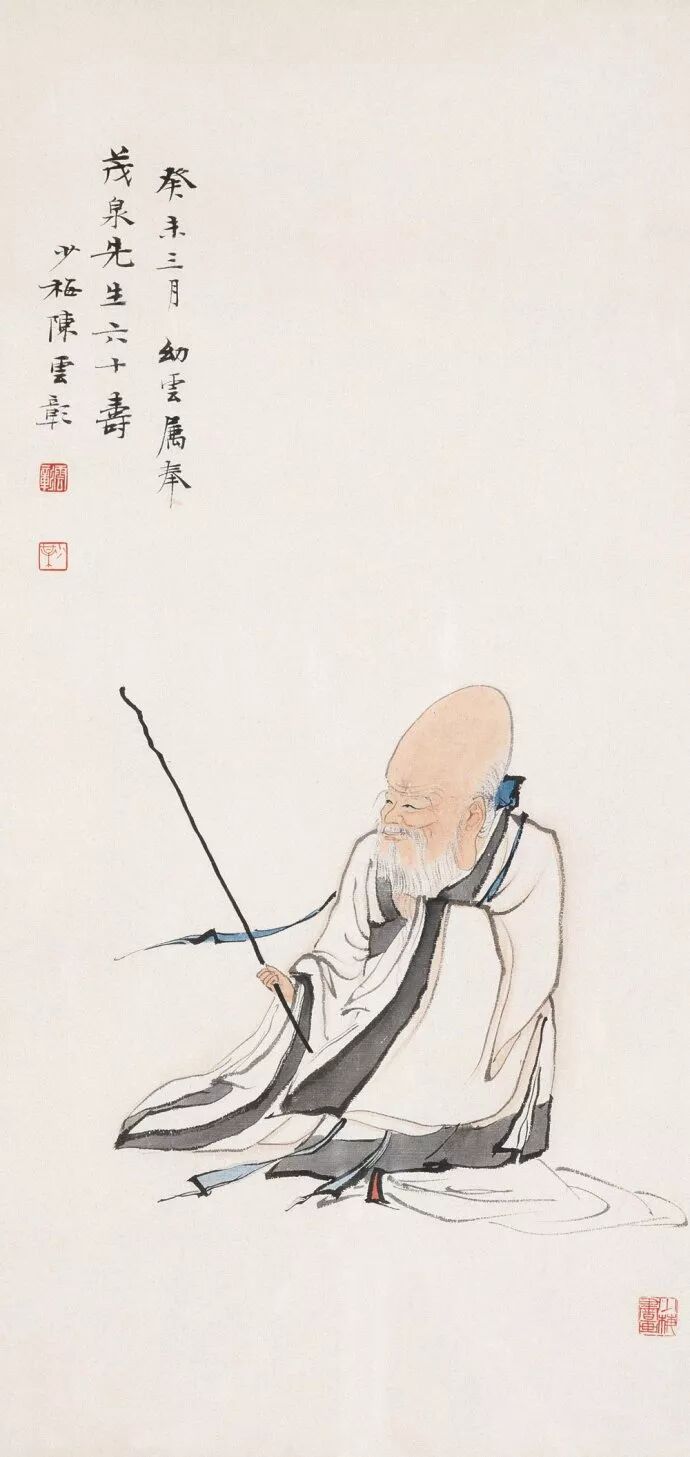 癸未三月幼雲属奉
茂泉先生六十壽
少梅陳雲彰